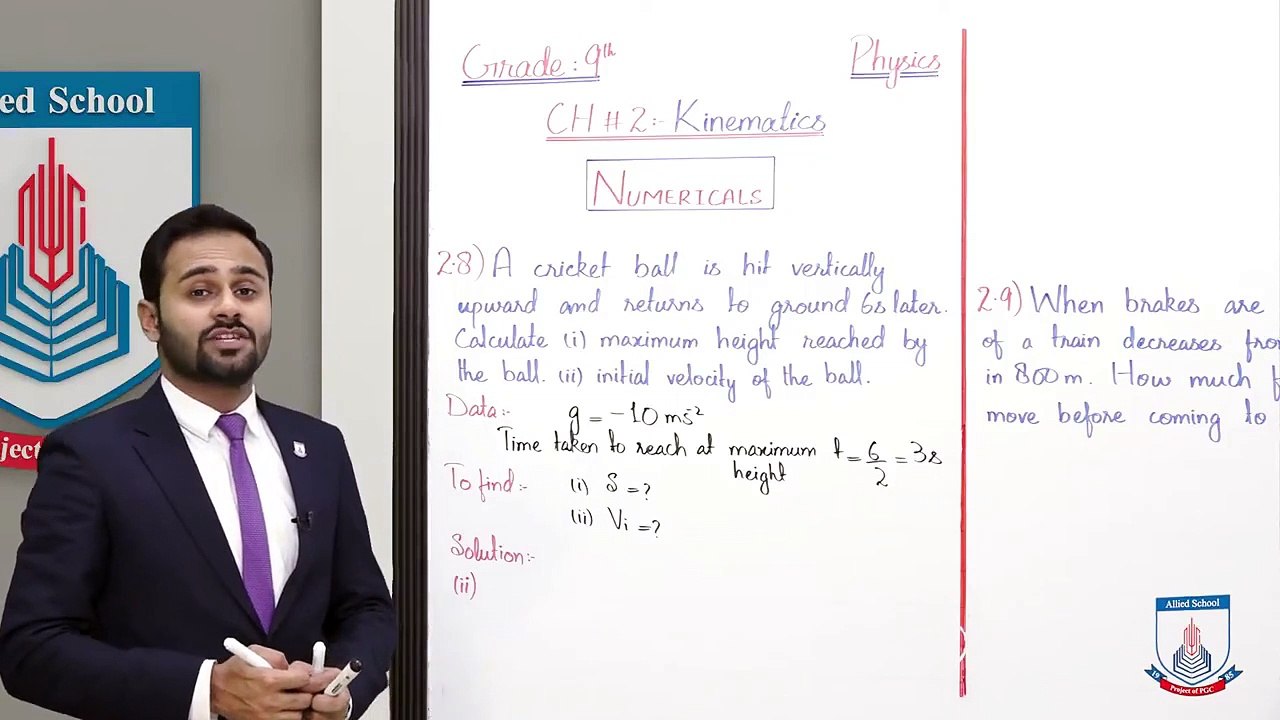 ied School
oject
Grade: 9th
Physics
CH # 2:- Kinematics
NUMERICALS
2.8) A cricket ball is hit vertically
upward and returns to ground 6s later.
Calculate (i) maximum height reached by
the ball. (ii) initial velocity of the ball.
Data:- g = -10 ms⁻²
Time taken to reach at maximum height t = 6/2 = 3s
To find:- (i) S = ?
(ii) Vi = ?
Solution:-
(ii)
2.9) When brakes are
of a train decreases from
in 800m. How much f
move before coming to
Allied School
19 85
Project of PGC